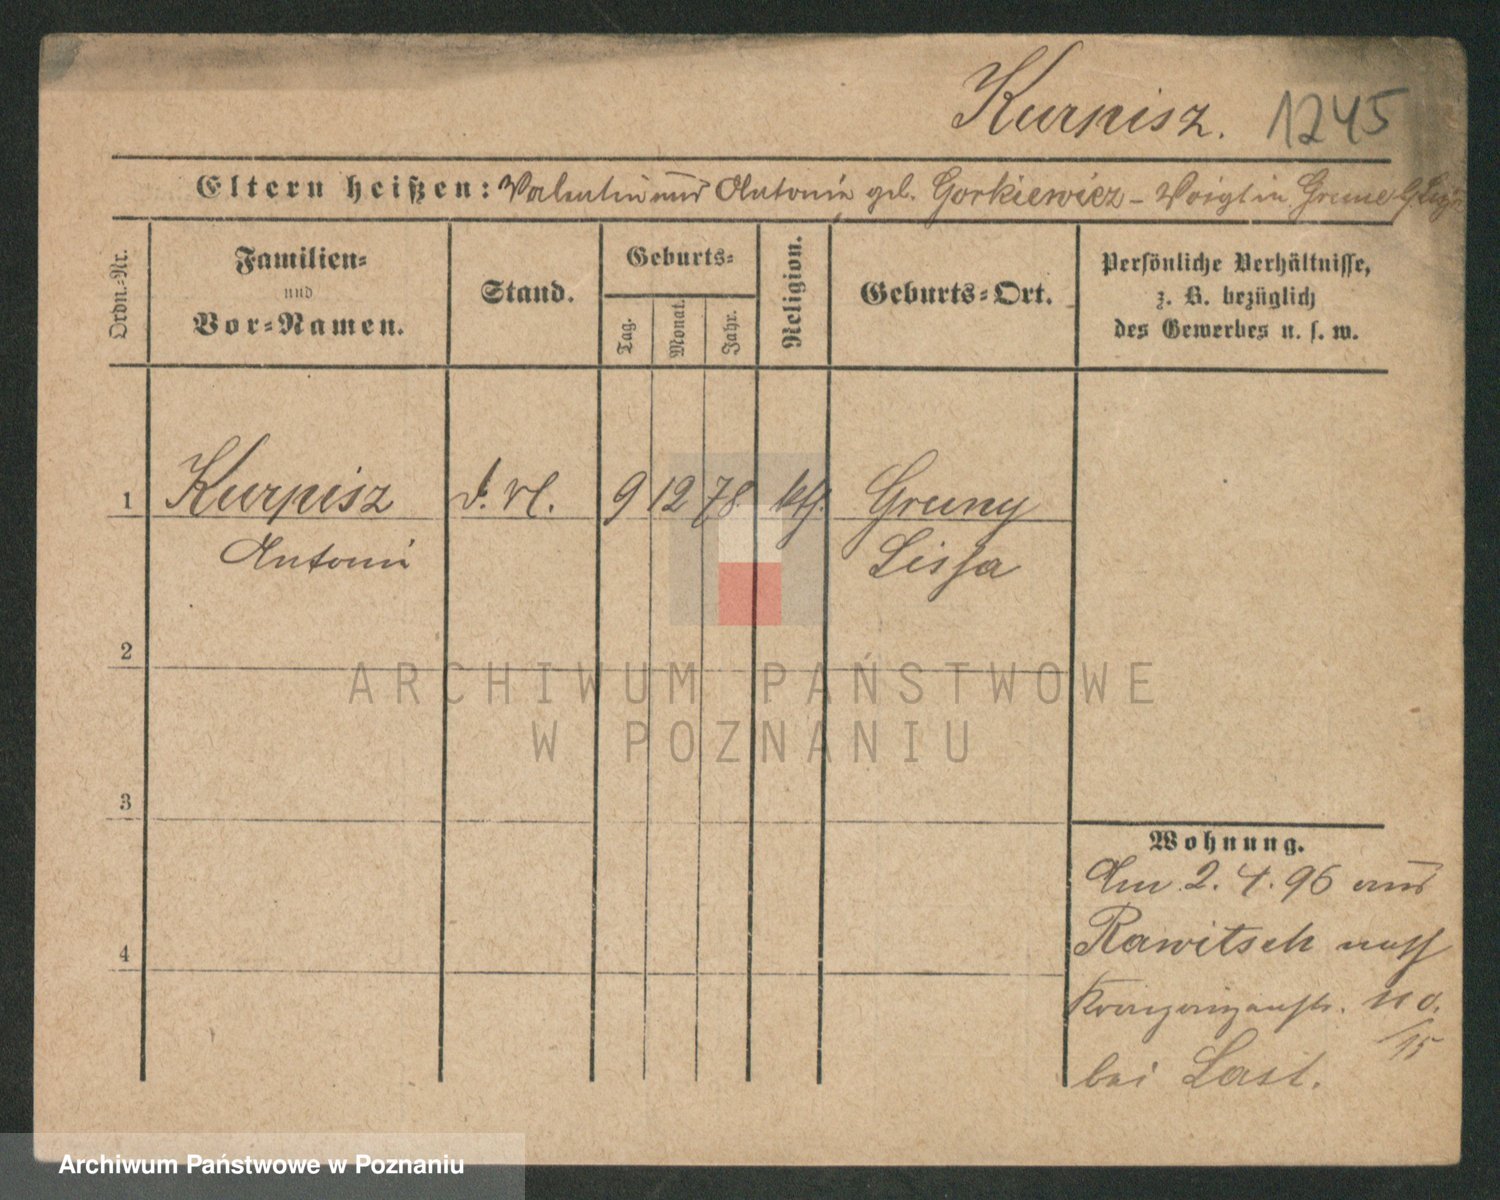 Kurpisz. 1245
Eltern heißen: Valentin und Antonie geb. Gorkiewicz - Voigt in Grune
Ordn.-Nr.
Familien-
und
Vor-Namen.
Stand.
Geburts-
Tag.
Monat.
Jahr.
Religion.
Geburts-Ort.
Persönliche Verhältnisse,
z. B. bezüglich
des Gewerbes u. s. w.
1 Kurpisz 9 12 78 kth. Gruny
Antoni Lissa
2
3
4
Wohnung.
Am 2. 4. 96 aus
Rawitsch nach
10 a.
15
bei Last.
ARCHIWUM PAŃSTWOWE
W POZNANIU
Archiwum Państwowe w Poznaniu